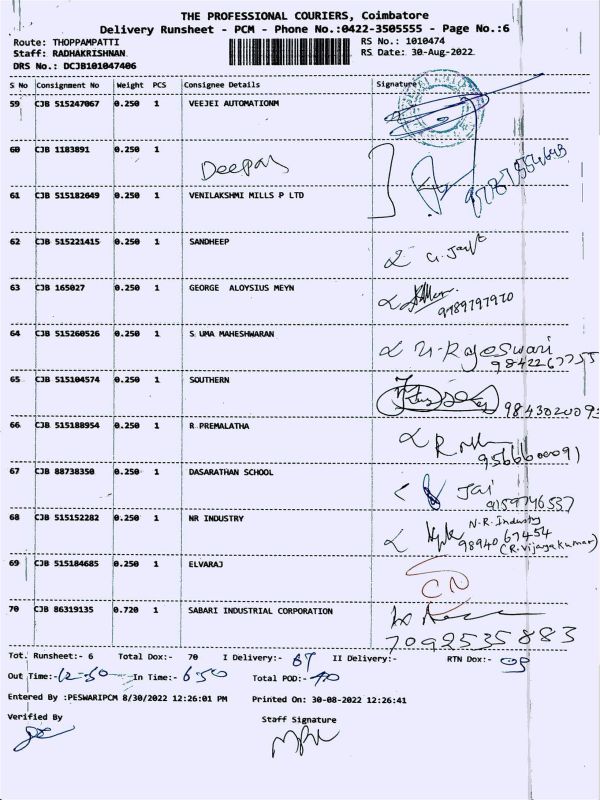 THE PROFESSIONAL COURIERS, Coimbatore
Delivery Runsheet - PCM - Phone No.:0422-3505555 - Page No.:6
Route: THOPPAMPATTI RS No.: 1010474
Staff: RADHAKRISHNAN RS Date: 30-Aug-2022
DRS No.: DCJB101047406
S No Consignment No Weight PCS Consignee Details Signature
59 CJB 515247067 0.250 1 VEEJEI AUTOMATIONM
60 CJB 1183891 0.250 1
Deepak
61 CJB 515182649 0.250 1 VENILAKSHMI MILLS P LTD
62 CJB 515221415 0.250 1 SANDHEEP
63 CJB 165027 0.250 1 GEORGE ALOYSIUS MEYN
9789797970
64 CJB 515260526 0.250 1 S UMA MAHESHWARAN
U-Rajeswari
9842267755
65 CJB 515104574 0.250 1 SOUTHERN
66 CJB 515188954 0.250 1 R PREMALATHA
9566600091
67 CJB 88738350 0.250 1 DASARATHAN SCHOOL
Jai
9159746537
68 CJB 515152282 0.250 1 NR INDUSTRY
N-R. Industry
9894067454
(R.Vijayakumar)
69 CJB 515184685 0.250 1 ELVARAJ
CN
70 CJB 86319135 0.720 1 SABARI INDUSTRIAL CORPORATION
7092535883
Tot. Runsheet:- 6 Total Dox:- 70 I Delivery:- 67 II Delivery:- RTN Dox:- 03
Out Time:- 12-50 In Time:- 6.50 Total POD:-
Entered By :PESWARIPCM 8/30/2022 12:26:01 PM Printed On: 30-08-2022 12:26:41
Verified By Staff Signature